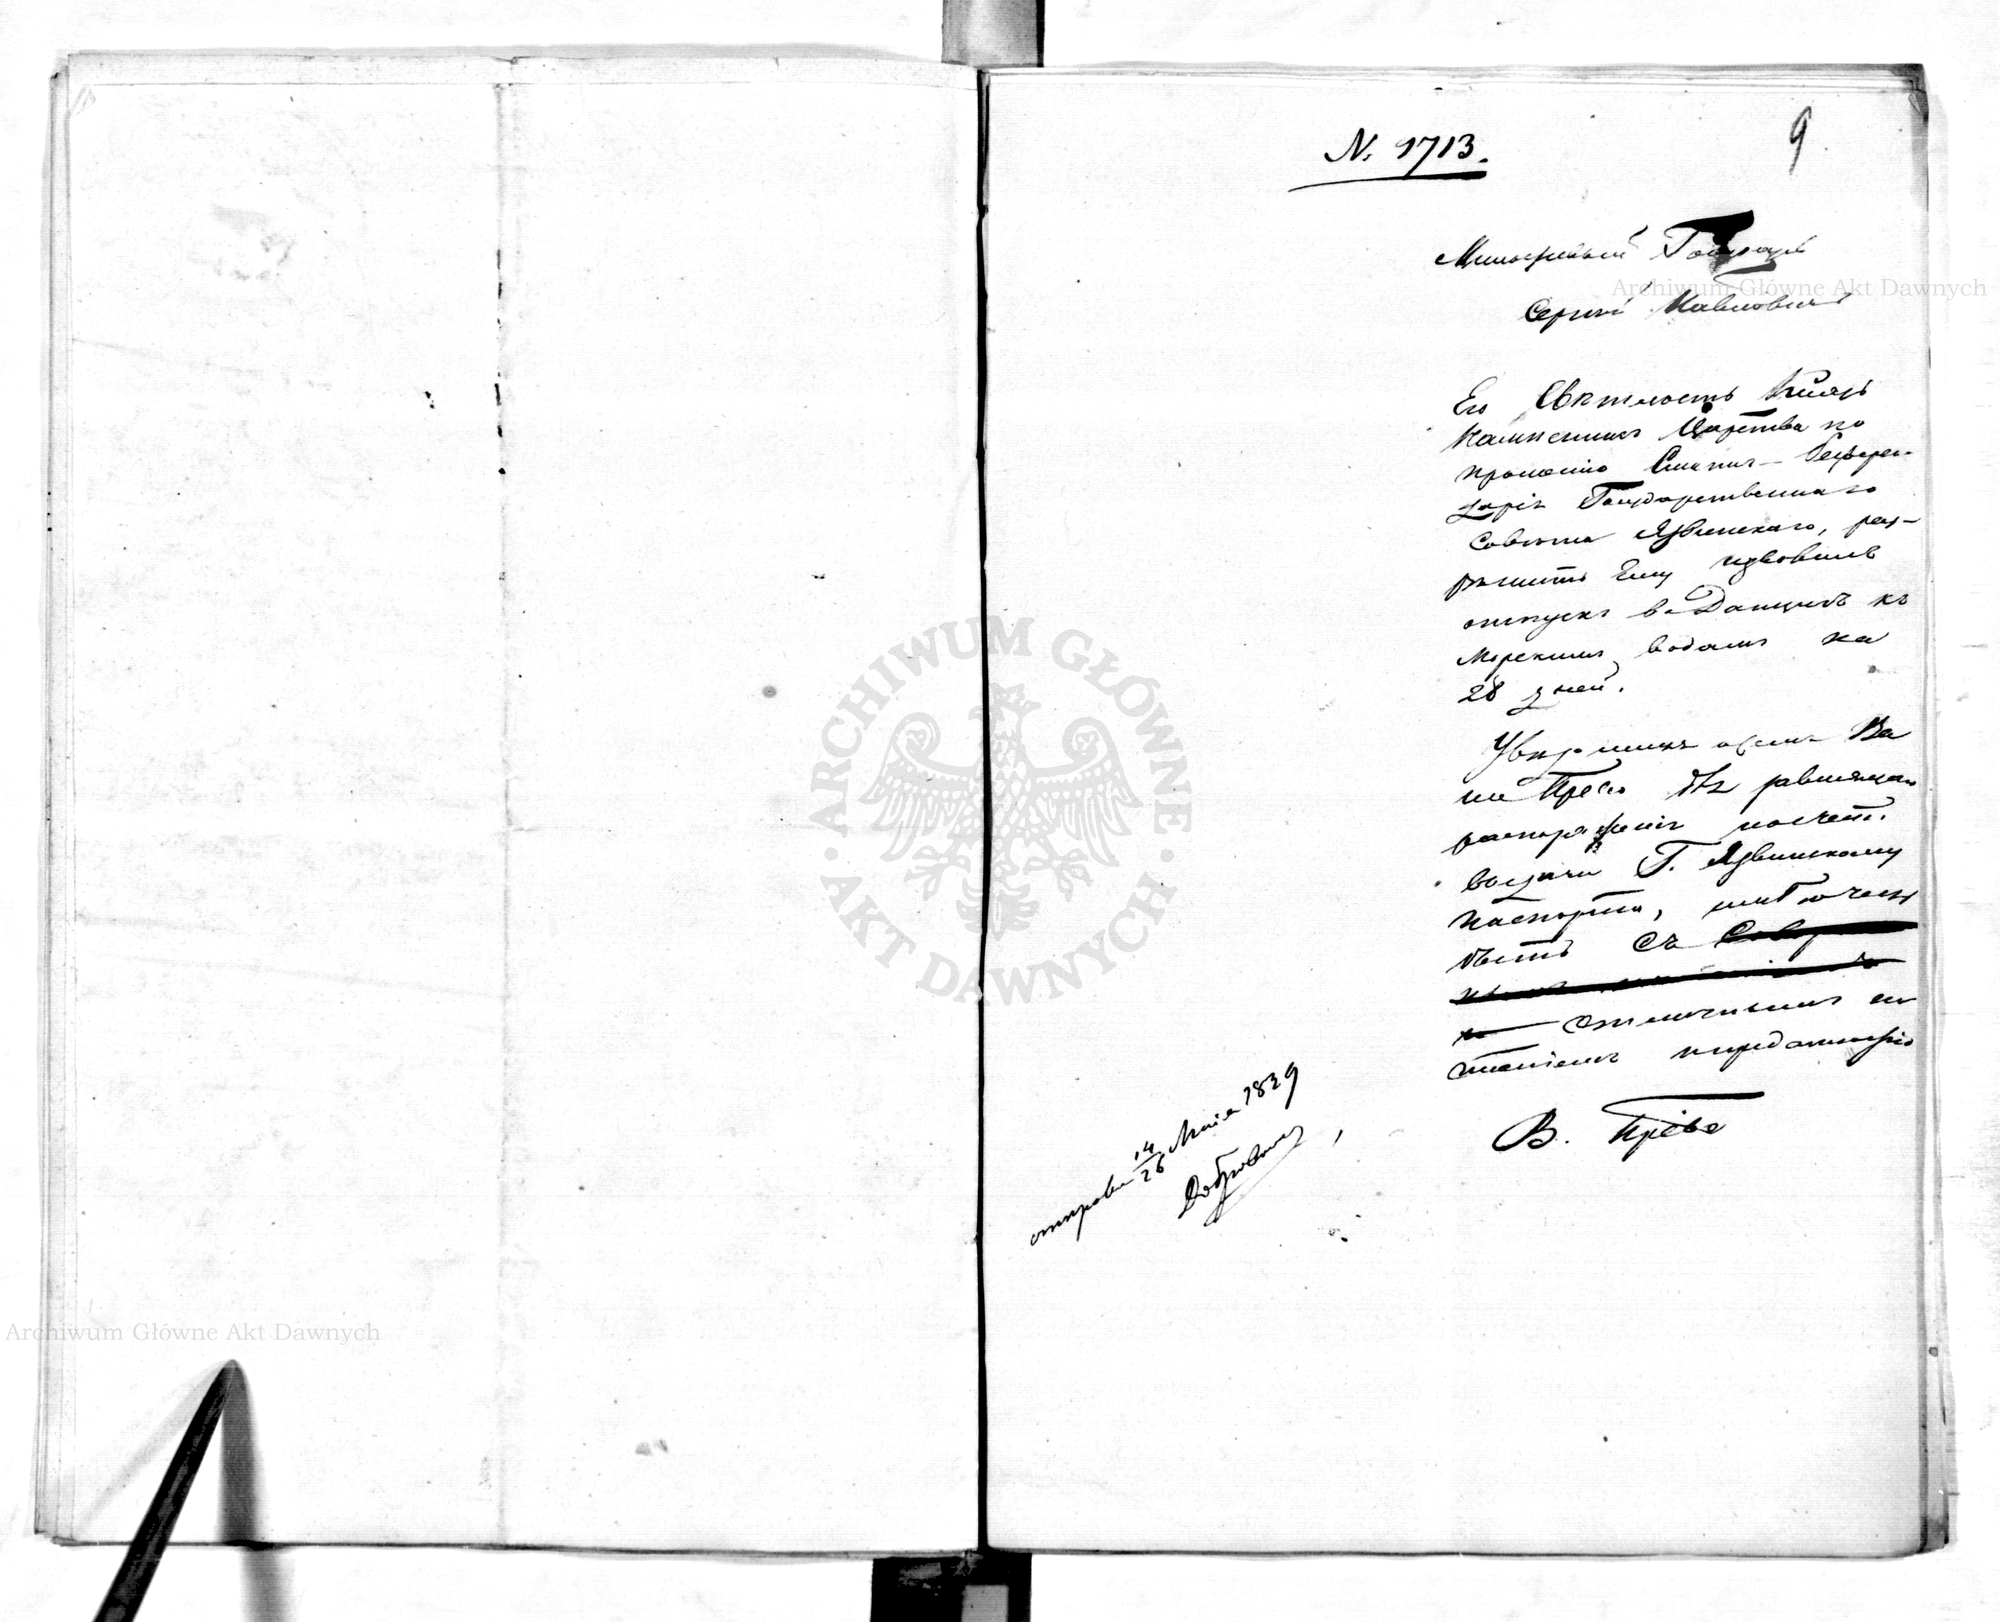 N. 1713.
9
Милостивый Государь
Сергий Павлович
Его Светлость Князь
Наместник Царства по
прошению Статс-Рефрен-
дария Государственного
Совета Язвинскаго, раз-
решить Ему изволил
отпуск в Данциг к
морским водам на
28 дней.
Уведомляя о сем Ва
ше Прево для зависящаго
распоряжения насчет
выдачи Г. Язвинскому
паспорта, имею честь
быть съ
отличным по
чтением и преданностию
В. Прево
отправл. 14/26 Маія 1839
Archiwum Główne Akt Dawnych
ARCHIWUM GŁÓWNE
AKT DAWNYCH
Archiwum Główne Akt Dawnych